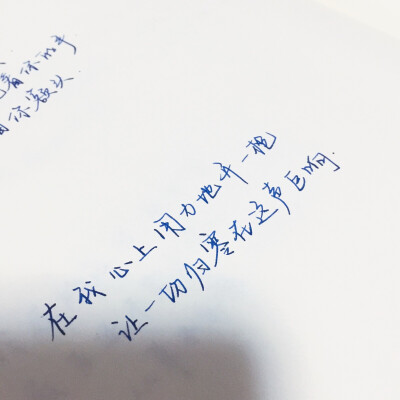 着你的手
你额头
在我心上用力地开一枪
让一切归零在这声巨响